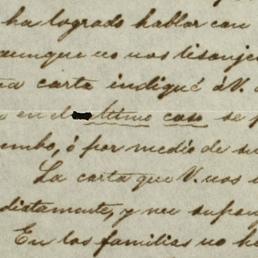 ha logrado hablar con
aunque no nos lisonje
na carta indiqué á V.
en el último caso se p
embo, ó por medio de su
La carta que V. nos
diatamente, y me supon
En las familias no h